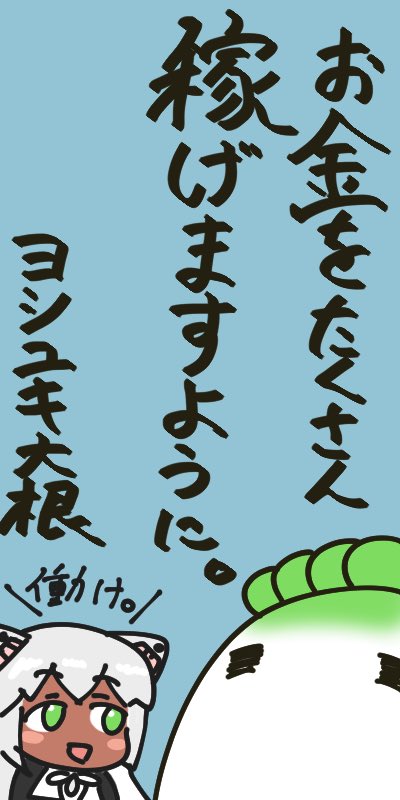 お金をたくさん
稼げますように。
ヨシユキ大根
働け。